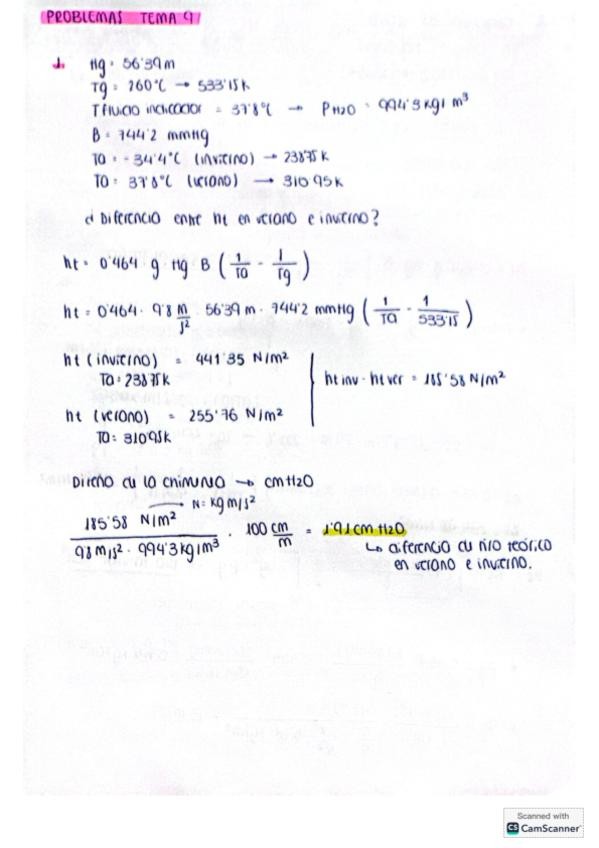 PROBLEMAS TEMA 9
1. Hg = 56'39 m
Tg = 260°C → 533'15 K
T fluido indicador = 37'8°C → PH2O = 994'3 kg/m³
B = 744'2 mmHg
Ta = -34'4°C (invierno) → 238'75 K
Ta = 37'8°C (verano) → 310'95 K
¿Diferencia entre ht en verano e invierno?
ht = 0'464 · g · Hg · B (1/Ta - 1/Tg)
ht = 0'464 · 9'8 m/s² · 56'39 m · 744'2 mmHg (1/Ta - 1/533'15)
ht (invierno) = 441'35 N/m²
Ta = 238'75 K
ht (verano) = 255'76 N/m²
Ta = 310'95 K
ht inv - ht ver = 185'58 N/m²
Diseño de la chimenea → cmH2O
→ N = kg m/s²
185'58 N/m² / 9'8 m/s² · 994'3 kg/m³ · 100 cm/m = 1'91 cm H2O
↳ diferencia de tiro teórico
en verano e invierno.
Scanned with
CS CamScanner